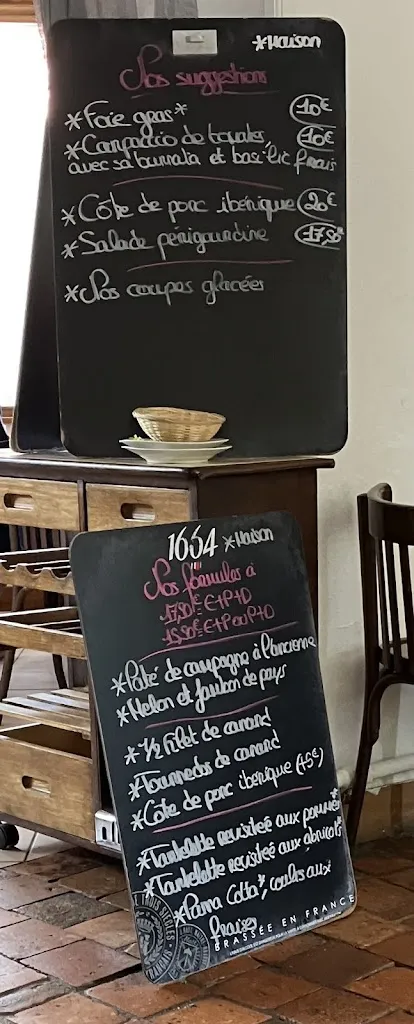 *Maison
Nos suggestions
*Foie gras* 10€
*Carpaccio de tomates, 10€
avec sa burrata et basilic frais
*Côte de porc ibérique 20€
*Salade périgourdine 17,50€
*Nos coupes glacées
1664 *Maison
Nos formules à
17,90€ E+P+D
15,90€ E+P ou P+D
*Paté de campagne à l'ancienne
*Melon et jambon de pays
*1/2 filet de canard
*Tournedos de canard
*Côte de porc ibérique (+5€)
*Tartelette revisiteé aux pommes*
*Tartelette revisiteé aux abricots*
*Pana Cotta*, coulis aux
fraises
BRASSÉE EN FRANCE